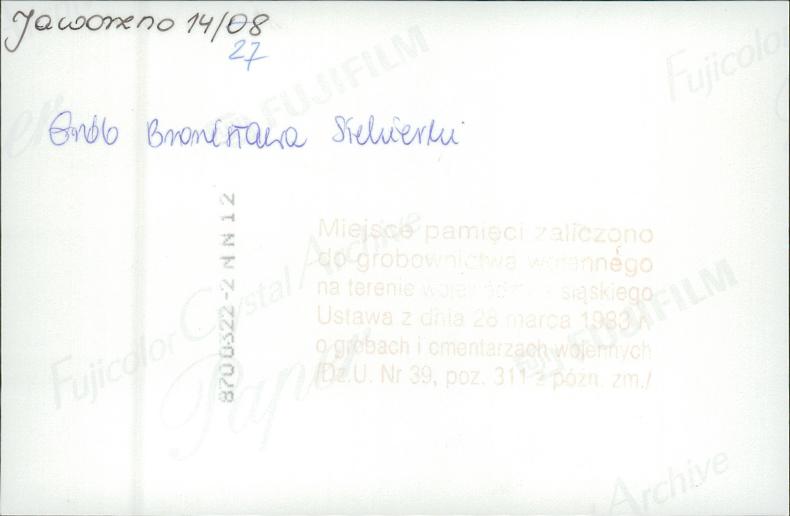 Jaworzno 14/08
27
Grób Bronisława Siekierki
8700322-2 N N 12
Miejsce pamięci zaliczono
do grobownictwa wojennego
na terenie województwa śląskiego
Ustawa z dnia 28 marca 1933 r.
o grobach i cmentarzach wojennych
/Dz.U. Nr 39, poz. 311 z późn. zm./
FUJIFILM
Fujicolor
Fujicolor Crystal Archive
Paper
FUJIFILM
Archive